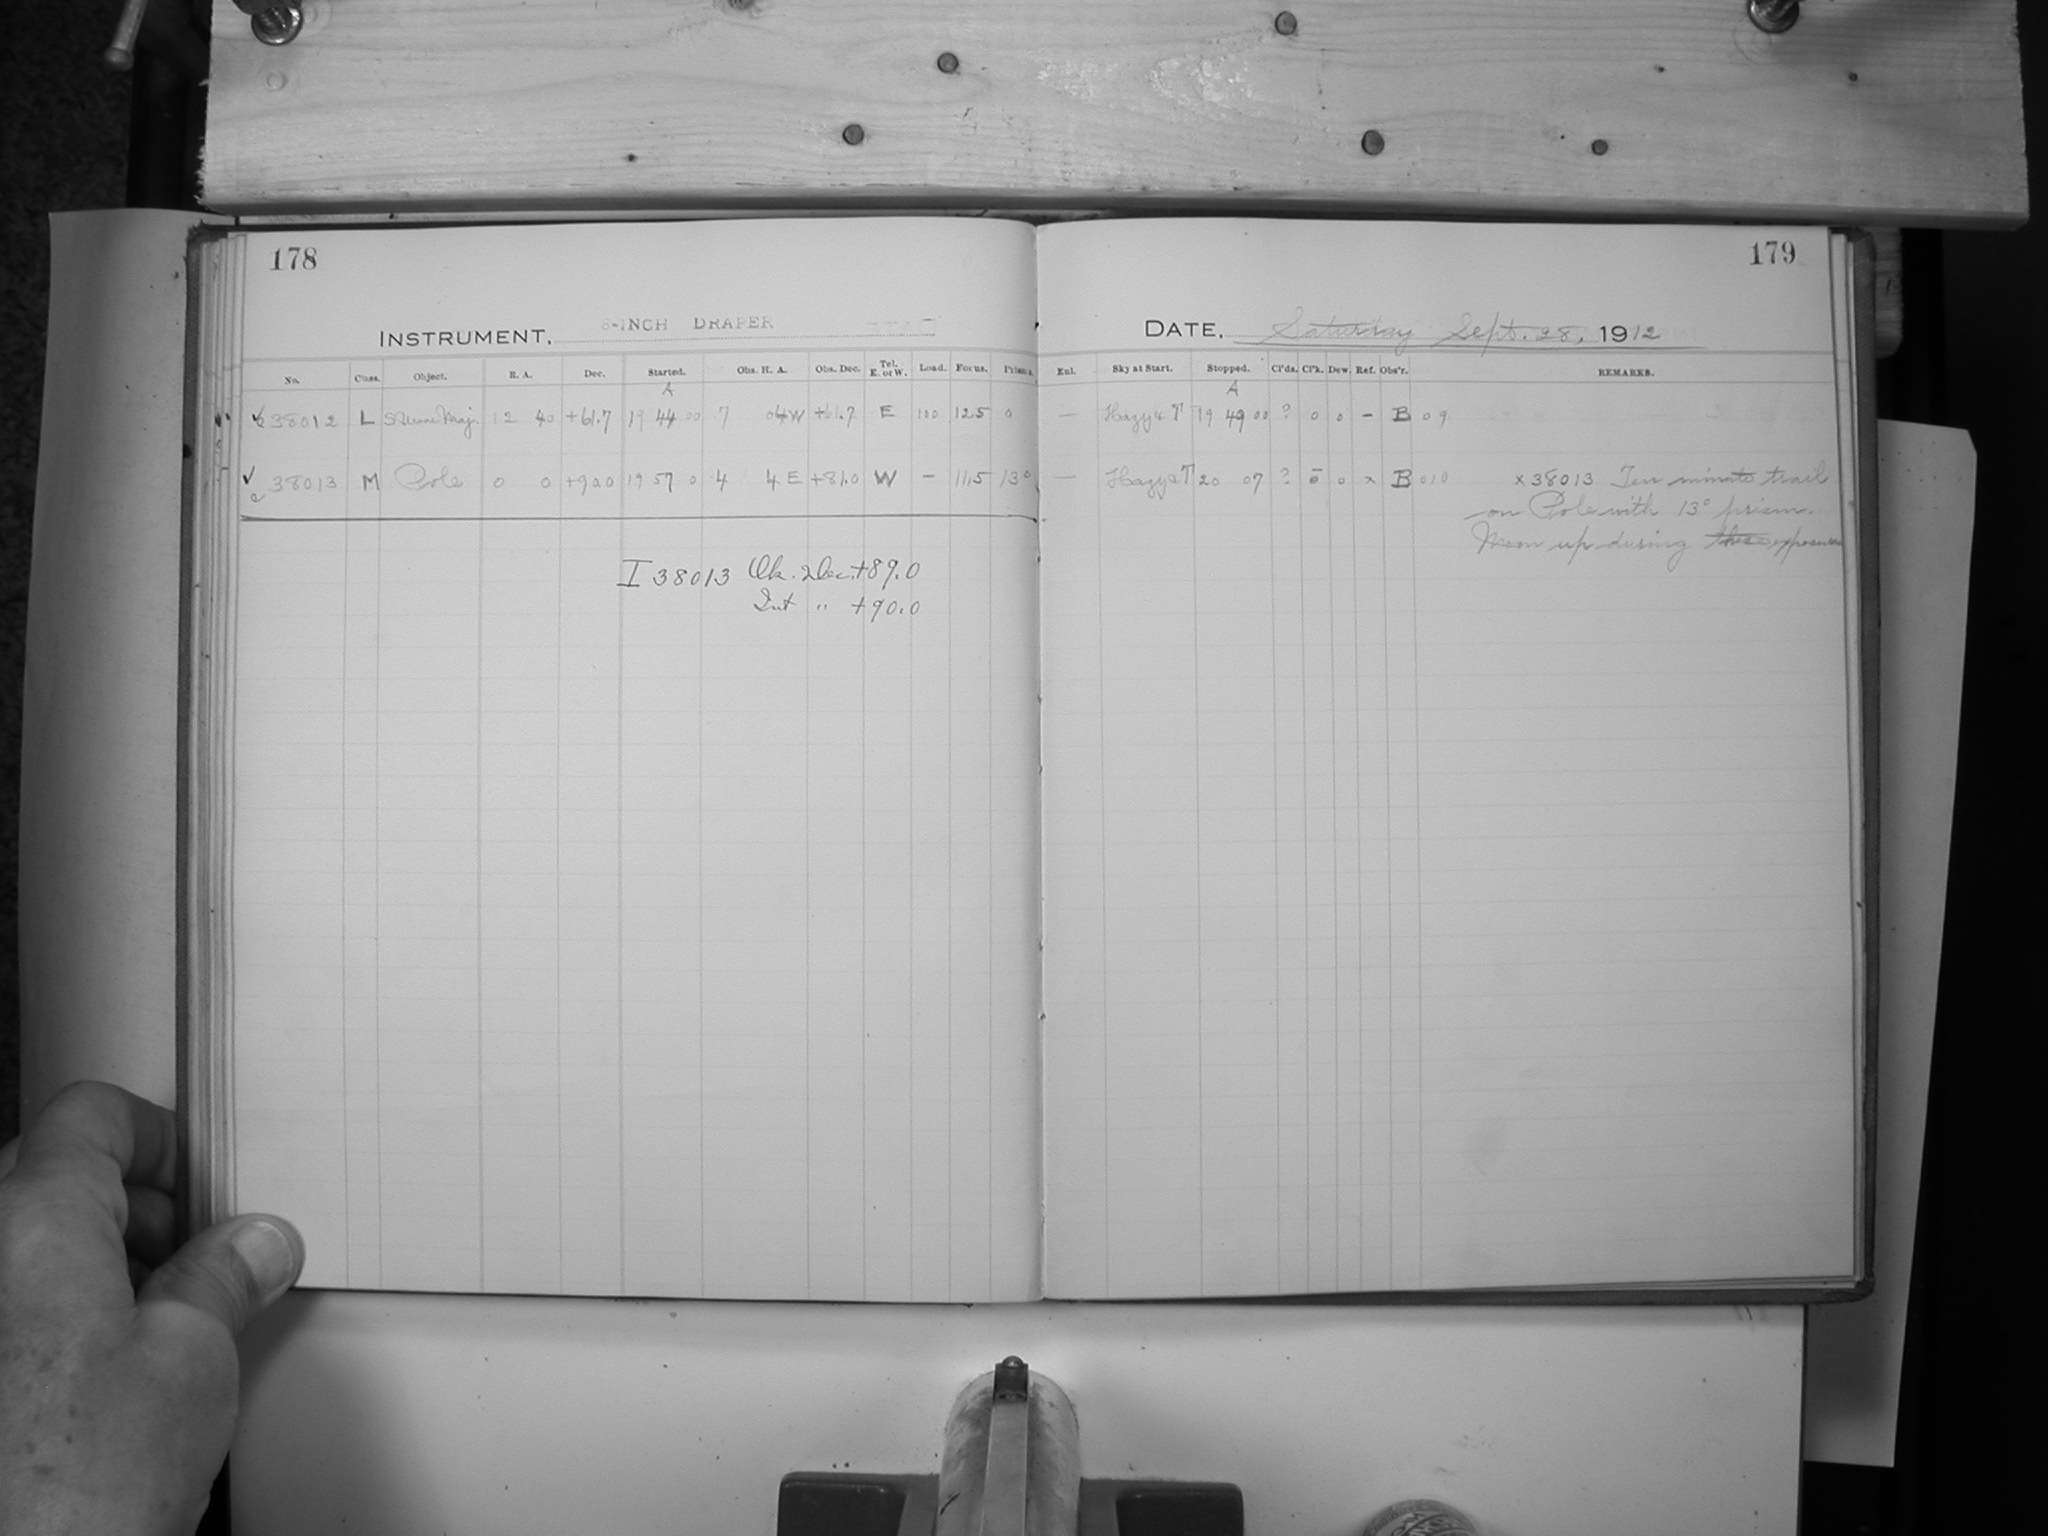 178
179
INSTRUMENT, 8-INCH DRAPER
DATE, Saturday Sept. 28, 1912
No. Class. Object. R. A. Dec. Started. Obs. H. A. Obs. Dec. Tel. E. or W. Load. Focus. Prisms. Enl. Sky at Start. Stopped. Cl'ds. Cl'k. Dew. Ref. Obs'r. REMARKS.
A A
38012 L 12 40 +61.7 19 44 00 7 04W +61.7 E 100 12.5 0 — Hazy & T 19 49 00 ? 0 0 – B 09
38013 M Pole 0 0 +90.0 19 57 0 4 4 E +81.0 W – 11.5 13° — Hazy & T 20 07 ? 0 0 x B 010 x 38013 Ten minute trail
on Pole with 13° prism.
Moon up during these exposures
I 38013 Ok. Dec. +89.0
Int " +90.0